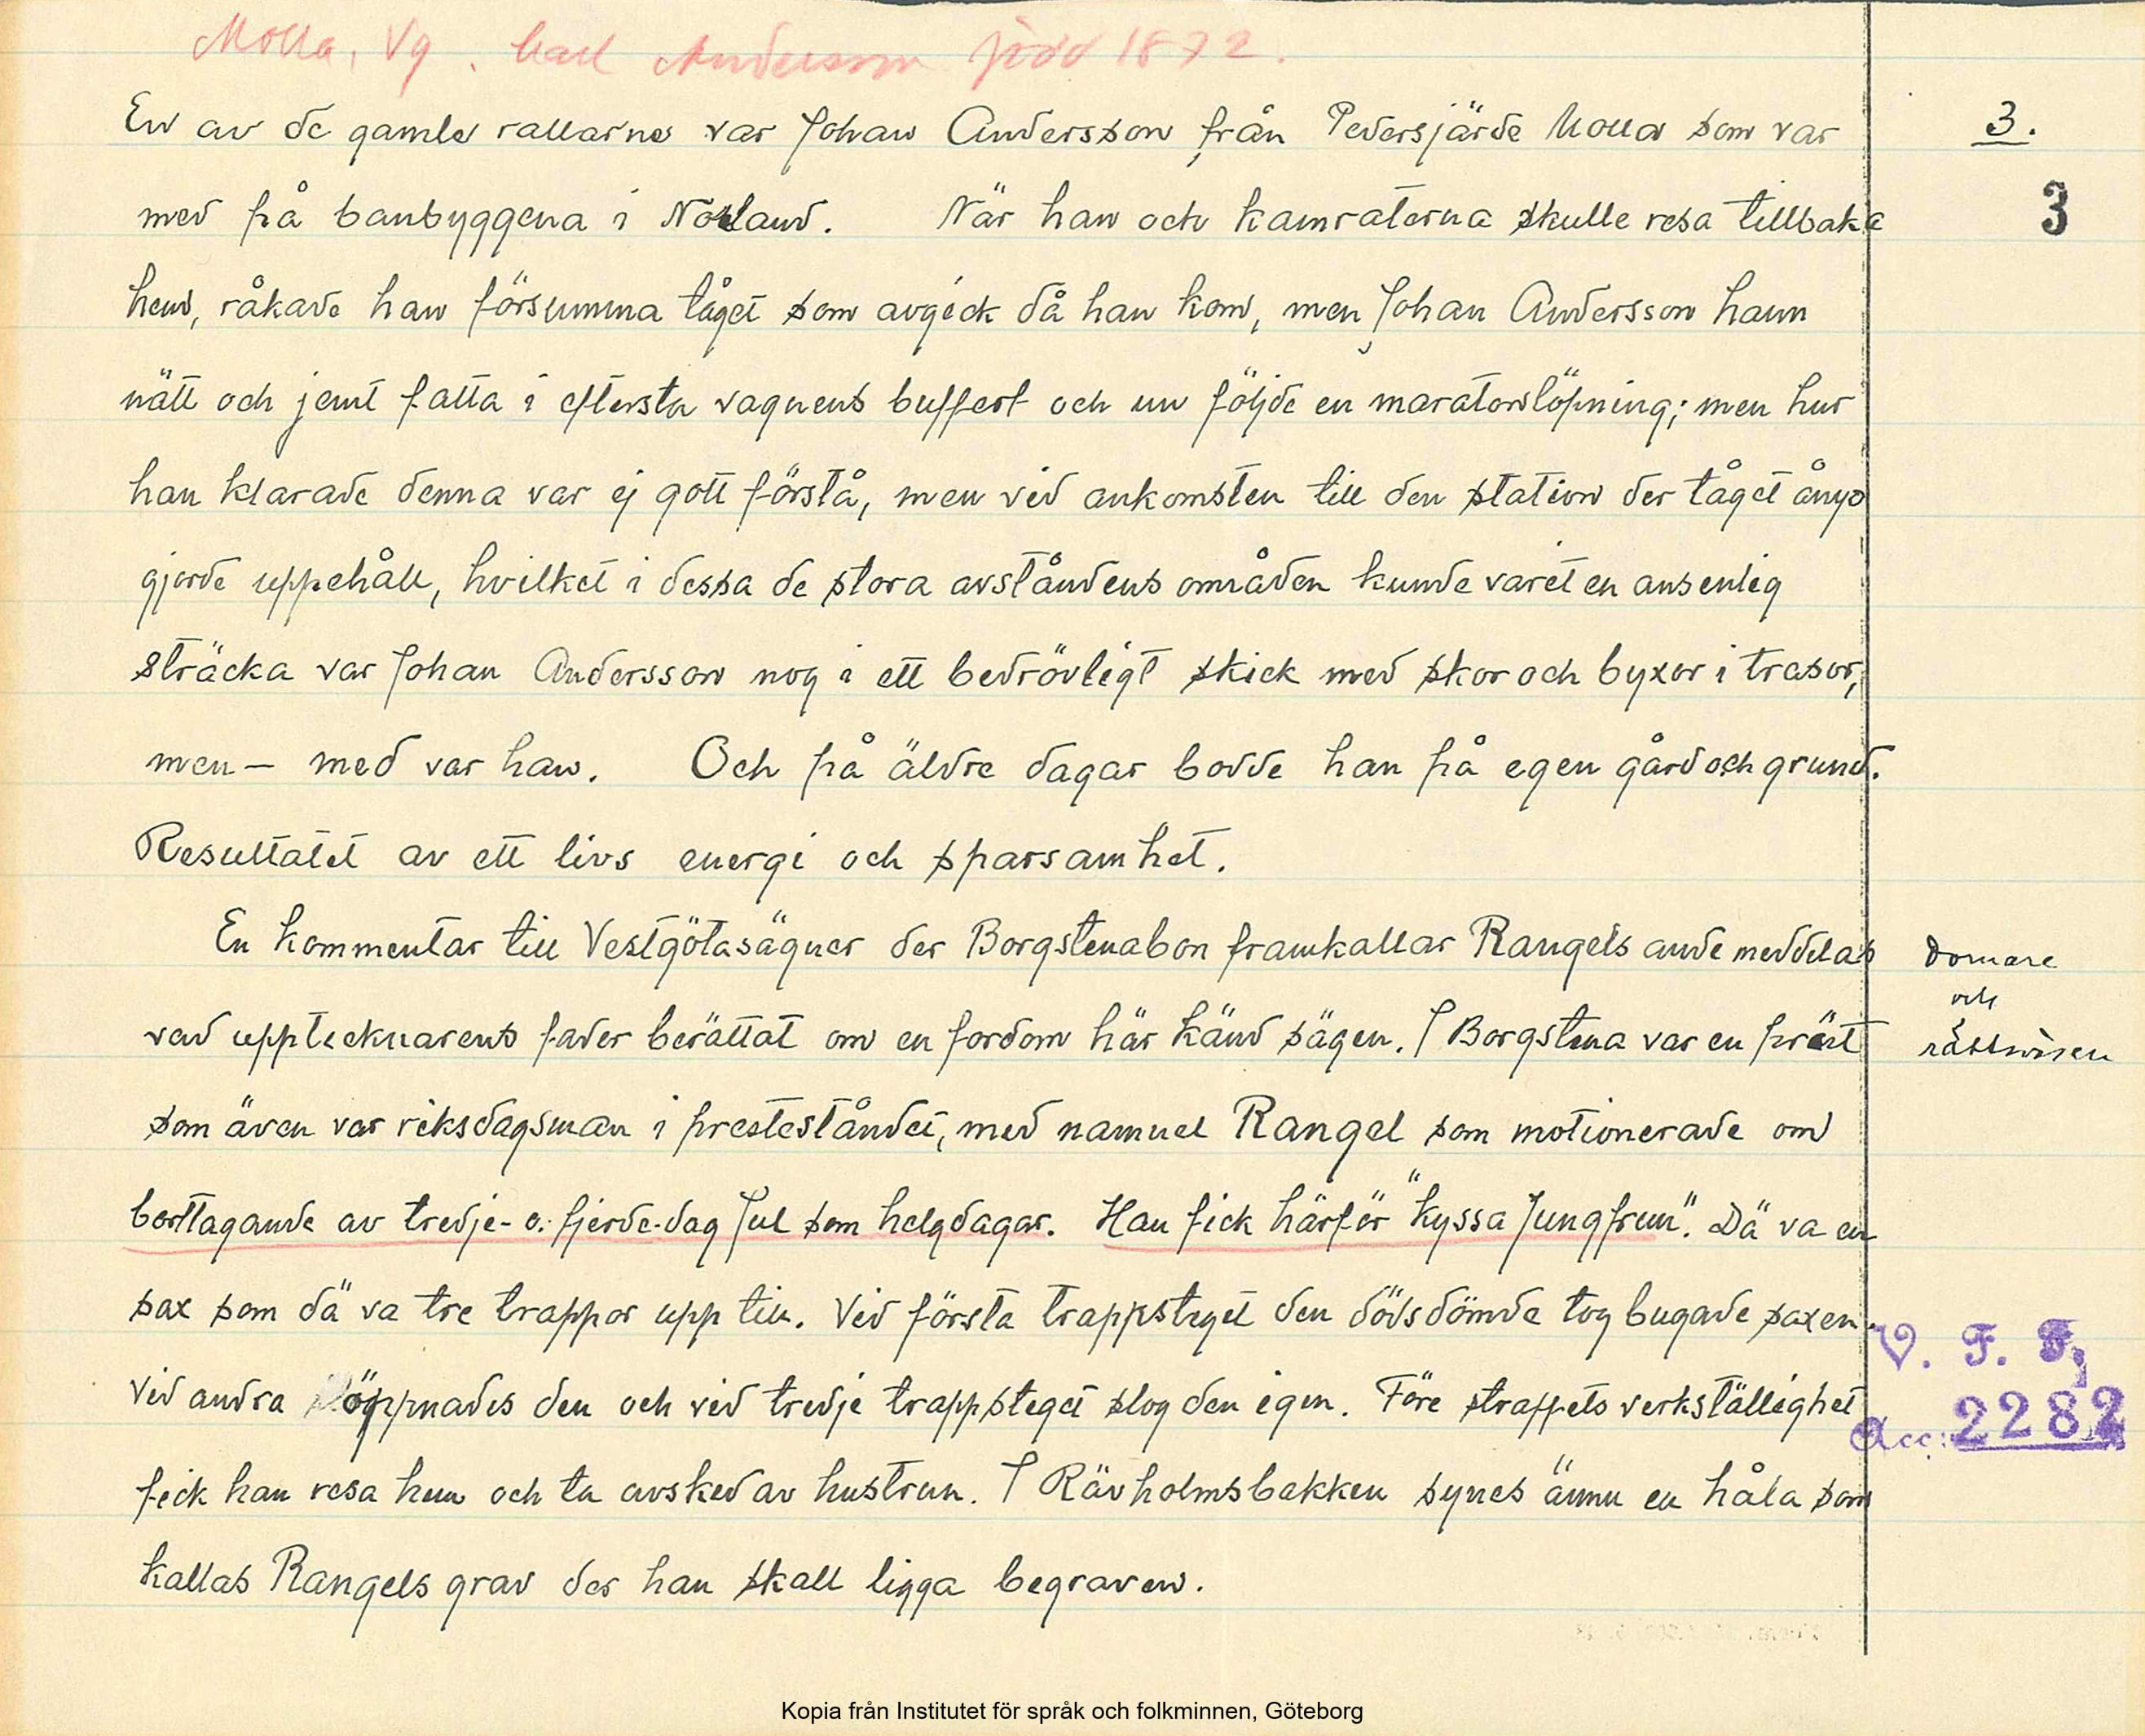 Molla, Vg. Carl Andersson född 1872.
En av de gamle rallarne var Johan Andersson från Pedersjärde Molla som var
3.
med på banbyggena i Norland. När han och kamraterna skulle resa tillbaka
3
hem, råkade han försumma tåget som avgick då han kom, men Johan Andersson hann
nätt och jemt fatta i eftersta vagnens buffert och nu följde en maratonslöpning; men hur
han klarade denna var ej gott förstå, men vid ankomsten till den station der tåget ånyo
gjorde uppehåll, hvilket i dessa de stora avståndens områden kunde varit en ansenlig
sträcka var Johan Andersson nog i ett bedrövligt skick med skor och byxor i trasor,
men – med var han. Och på äldre dagar bodde han på egen gård och grund.
Resultatet av ett livs energi och sparsamhet.
En kommentar till Vestgötasägner der Borgstenabon framkallar Rangels ande meddelas
Domare
och
rättvisen
vad upptecknarens fader berättat om en fordom här känd sägen. I Borgstena var en präst
som även var riksdagsman i presteståndet, med namnet Rangel som motionerade om
borttagande av tredje- o. fjerde-dag Jul som helgdagar. Han fick härför "kyssa Jungfrun". Dä va en
sax som dä va tre trappor upp till. Vid första trappsteget den dödsdömde tog bugade saxen.
V. F. F.
vid andra öppnades den och vid tredje trappsteget slog den igen. Före straffets verkställighet
Acc: 2282
fick han resa hem och ta avsked av hustrun. I Rävholmsbakken synes ännu en håla som
kallas Rangels grav der han skall ligga begraven.
Kopia från Institutet för språk och folkminnen, Göteborg